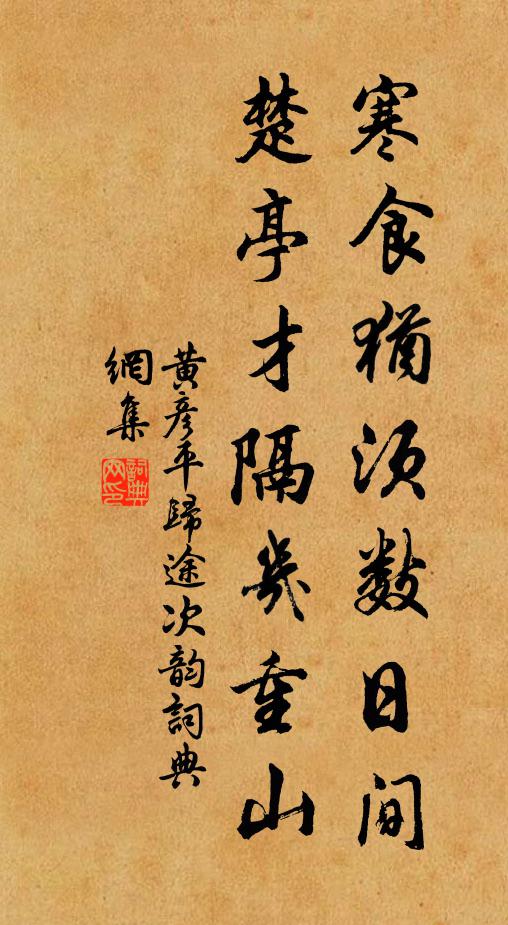 寒食猶須数日间
楚亭才隔幾重山
黄彦平歸途次韵詞典
網集
詞典网印